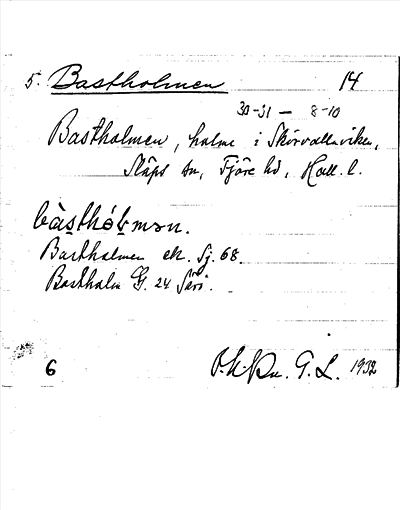 5. Bastholmen 14
30-31 — 8-10
Bastholmen, holme i Skörvallaviken,
Släps sn, Fjäre hd, Hall. l.
bàsthólmən.
Bastholmen ek. Sj. 68.
Bastholm G. 24 Särö.
6 G. L. 1932